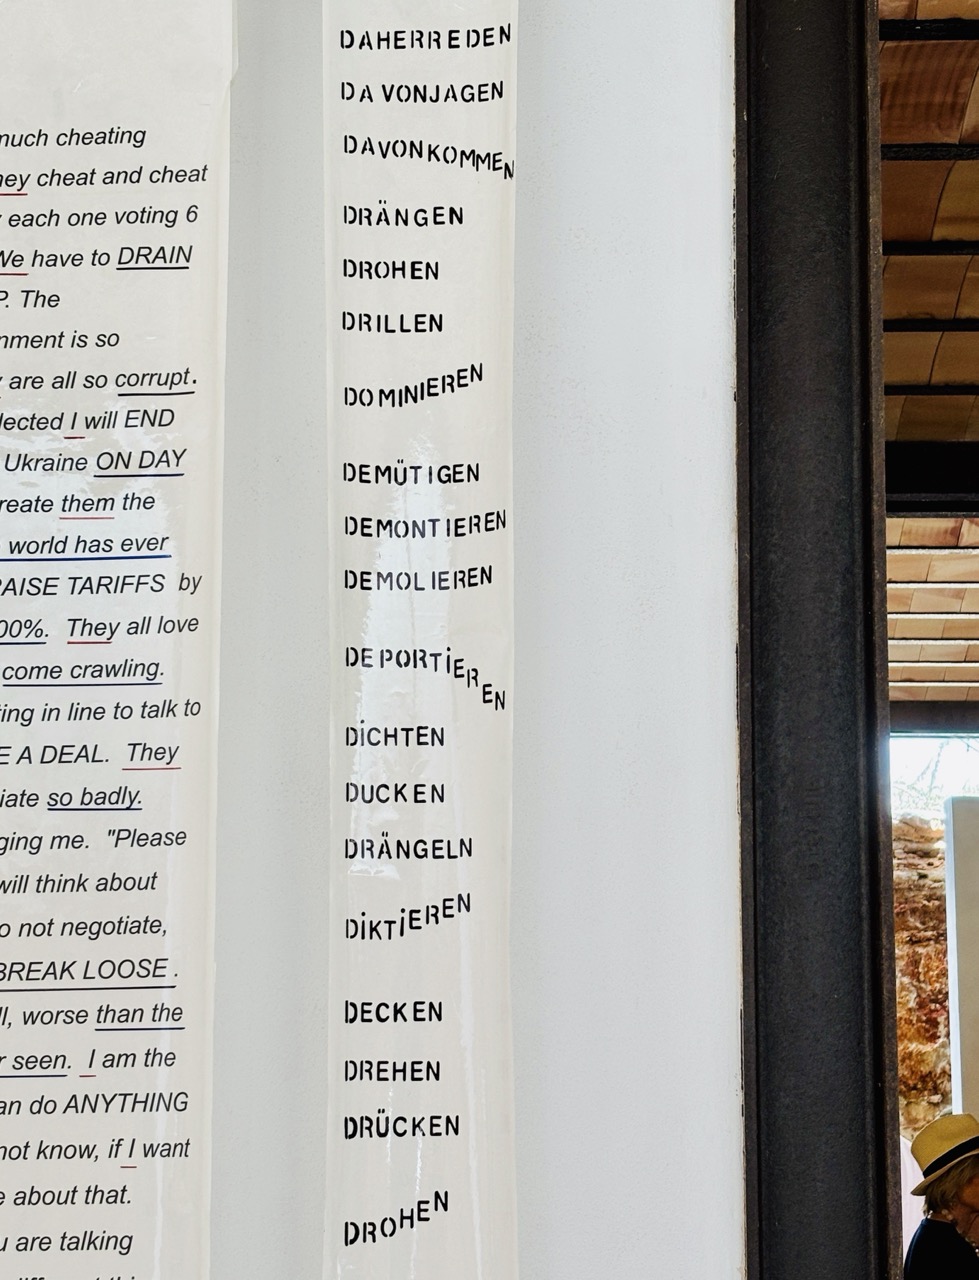 much cheating
cheat and cheat
each one voting 6
We have to DRAIN
P. The
is so
are all so corrupt.
I will END
Ukraine ON DAY
them the
world has ever
TARIFFS by
00%. They all love
come crawling.
in line to talk to
E A DEAL. They
so badly.
me. "Please
will think about
not negotiate,
BREAK LOOSE.
worse than the
seen. I am the
do ANYTHING
not know, if I want
about that.
are talking
DAHERREDEN
DAVONJAGEN
DAVONKOMMEN
DRÄNGEN
DROHEN
DRILLEN
DOMINIEREN
DEMÜTIGEN
DEMONTIEREN
DEMOLIEREN
DEPORTiEREN
DiCHTEN
DUCKEN
DRÄNGELN
DiKTiEREN
DECKEN
DREHEN
DRÜCKEN
DROHEN